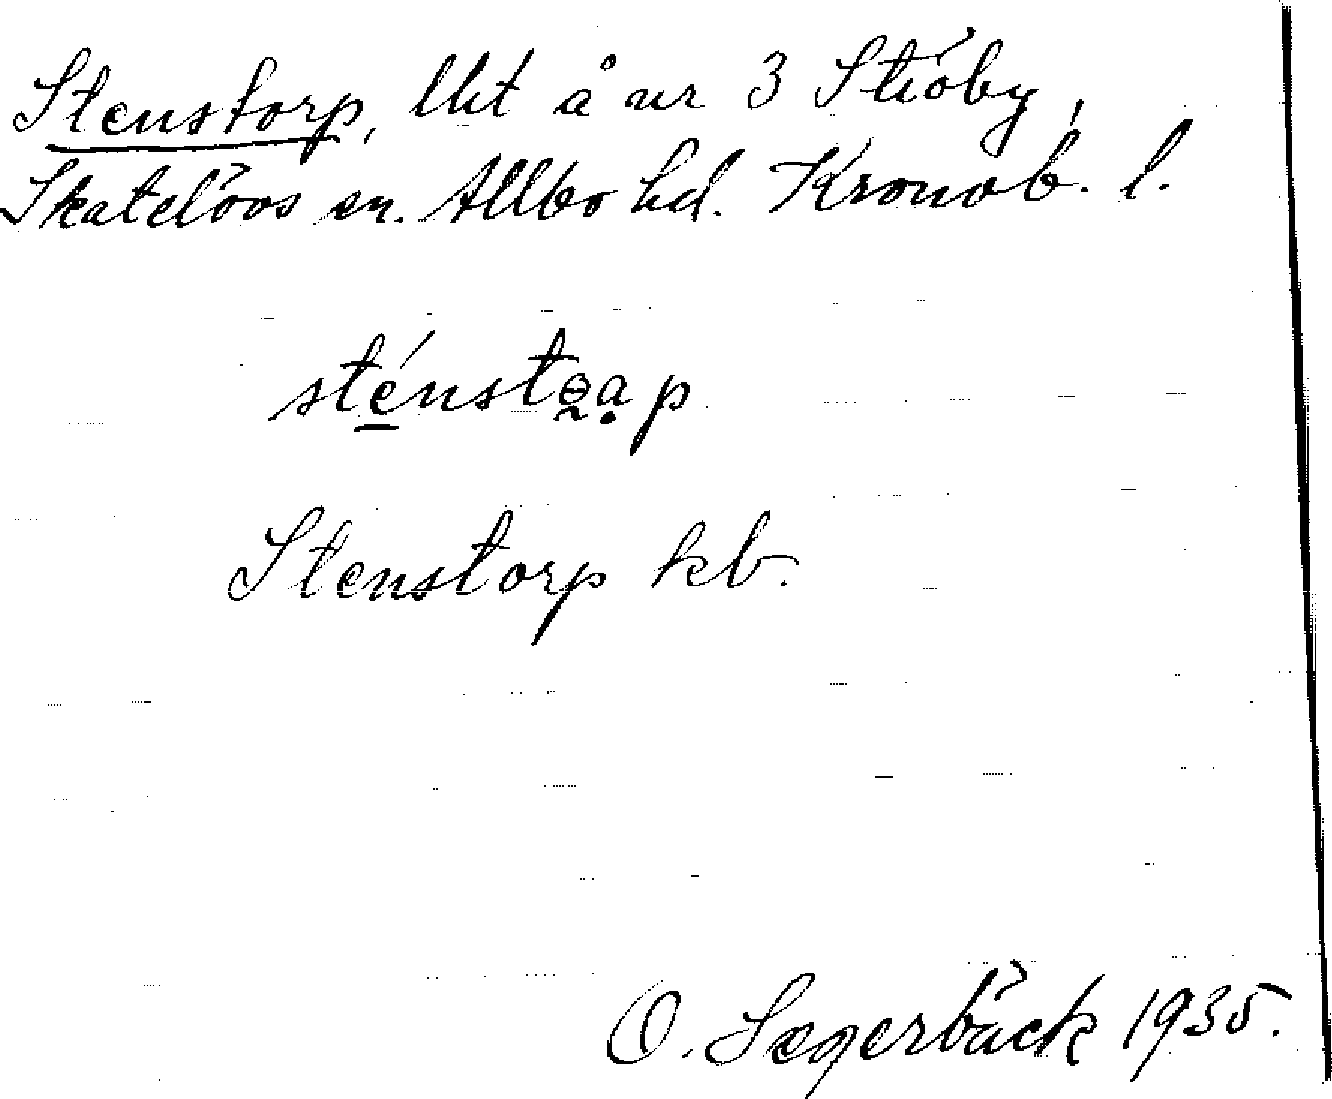 Stenstorp, lht å nr 3 Ströby,
Skatelövs sn. Allbo hd. Kronob. l.
sténst
Stenstorp kb.
O. Segerbäck 1935.